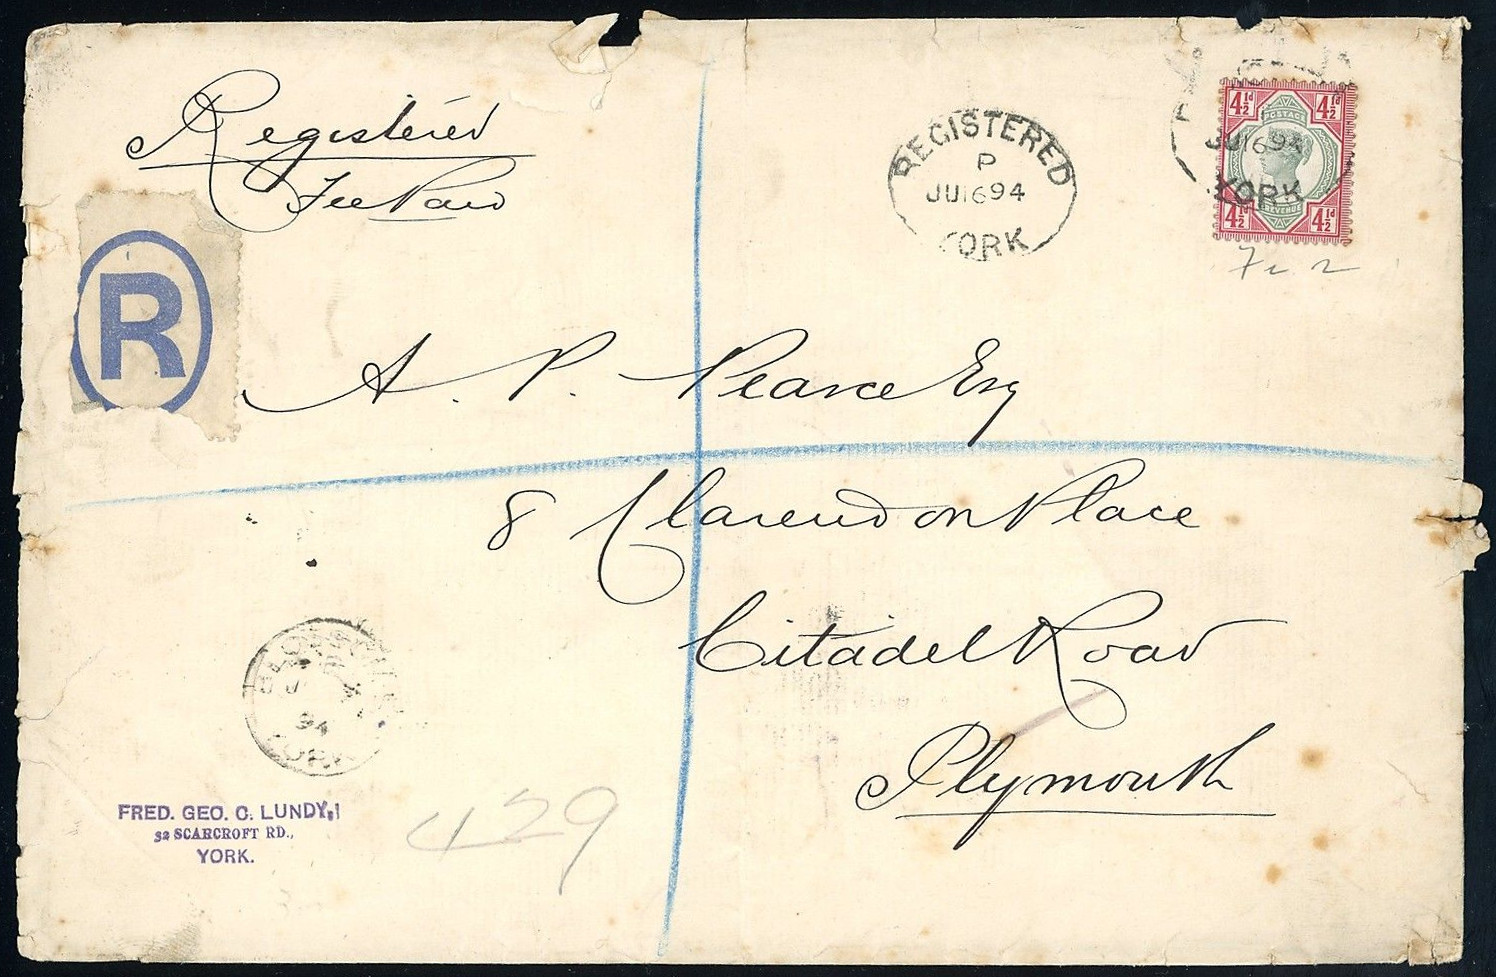 Registered
Fee Paid
R
REGISTERED
P
JU 16 94
YORK
4½d 4½d
POSTAGE
JU 16 94
YORK
REVENUE
4½d 4½d
A. P. Pearce Esq
8 Clarendon Place
Citadel Road
Plymouth
94
YORK
FRED. GEO. C. LUNDY,
32 SCARCROFT RD.,
YORK.
429